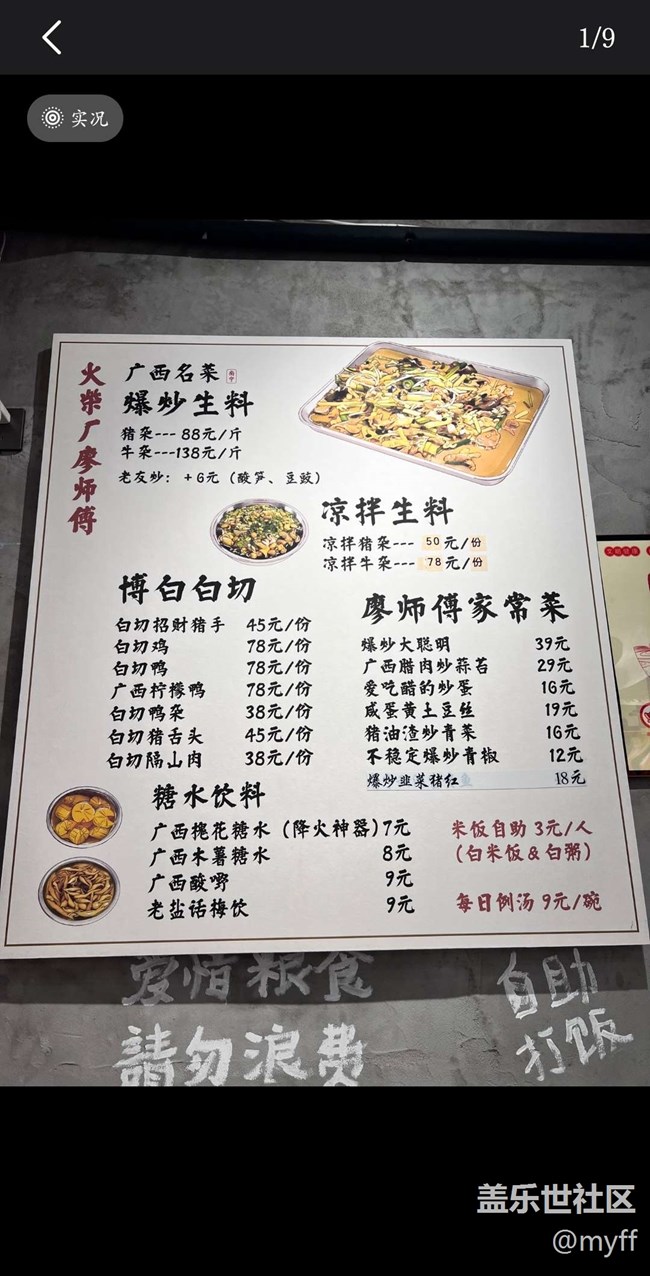 1/9
实况
火柴厂廖师傅
广西名菜
爆炒生料
猪杂---88元/斤
牛杂---138元/斤
老友炒：+6元（酸笋、豆豉）
凉拌生料
凉拌猪杂---50元/份
凉拌牛杂---78元/份
博白白切
白切招财猪手 45元/份
白切鸡 78元/份
白切鸭 78元/份
广西柠檬鸭 78元/份
白切鸭杂 38元/份
白切猪舌头 45元/份
白切隔山肉 38元/份
廖师傅家常菜
爆炒大聪明 39元
广西腊肉炒蒜苔 29元
爱吃醋的炒蛋 16元
咸蛋黄土豆丝 19元
猪油渣炒青菜 16元
不稳定爆炒青椒 12元
爆炒韭菜猪红 18元
糖水饮料
广西槐花糖水（降火神器）7元
广西木薯糖水 8元
广西酸嘢 9元
老盐话梅饮 9元
米饭自助 3元/人
（白米饭&白粥）
每日例汤 9元/碗
爱惜粮食
請勿浪费
自助
打饭
盖乐世社区
@myff